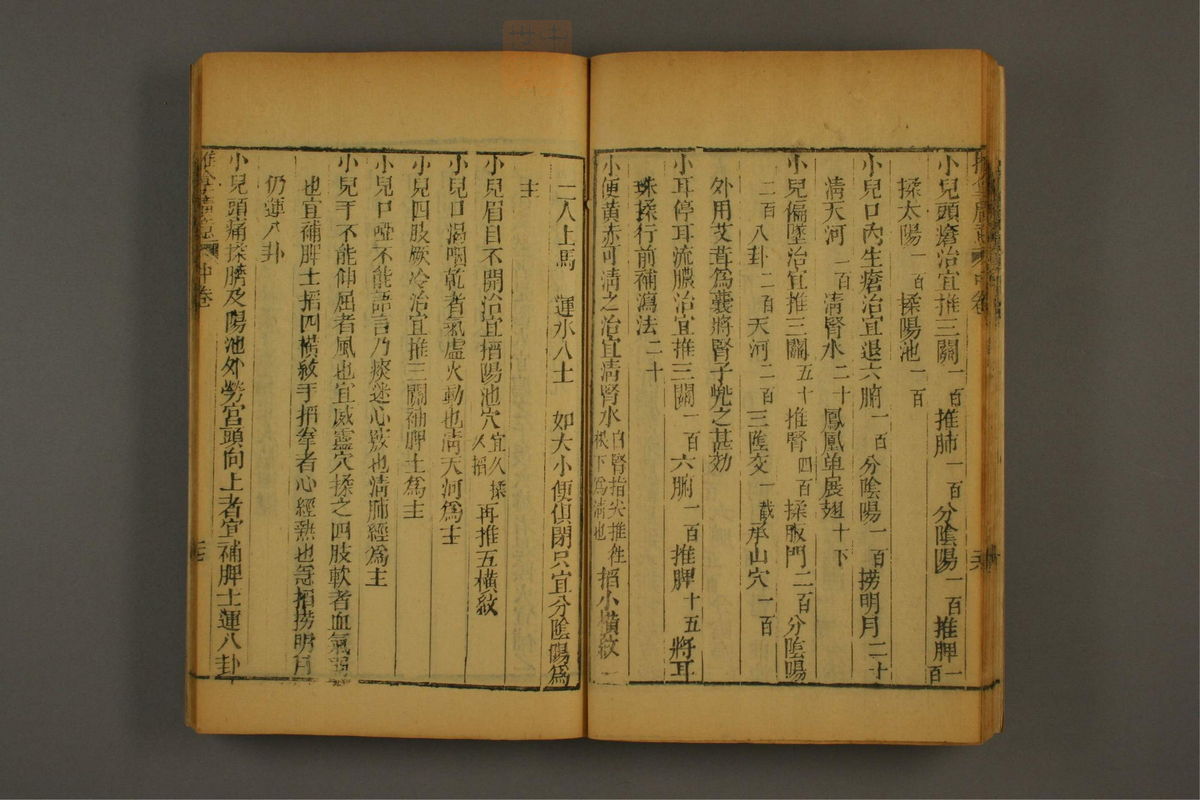 小兒頭瘡治宜推三關一百推肺一百分陰陽一百推脾一百
揉太陽一百揉陽池一百
小兒口內生瘡治宜退六腑一百分陰陽一百撈明月二十
清天河一百清腎水二十鳳凰单展翅十下
小兒偏墜治宜推三關五十推腎四百揉版門二百分陰陽
二百八卦二百天河二百三陰交一截承山穴一百
外用艾葺爲囊將腎子兠之甚効
小耳停耳流膿治宜推三關一百六腑一百推脾十五將耳
珠揉行前補瀉法二十
小便黄赤可淸之治宜淸腎水自腎指尖推徃根下爲淸也掐小橫紋
二人上馬 運水入土 如大小便俱閉只宜分陰陽爲
主
小兒眉目不開治宜掐陽池穴宜久揉久掐再推五橫紋
小兒口渴咽乾者氣虛火動也清天河爲主
小兒四肢厥冷治宜推三關補脾土爲主
小兒口啞不能語言乃痰迷心竅也清肺經爲主
小兒手不能伸屈者風也宜威靈穴揉之四肢軟者血氣弱
也宜補脾土掐四橫紋手拳者心經熱也急掐撈明月
仍運八卦
小兒頭痛揉臍及陽池外勞宮頭向上者宜補脾土運八卦
中卷